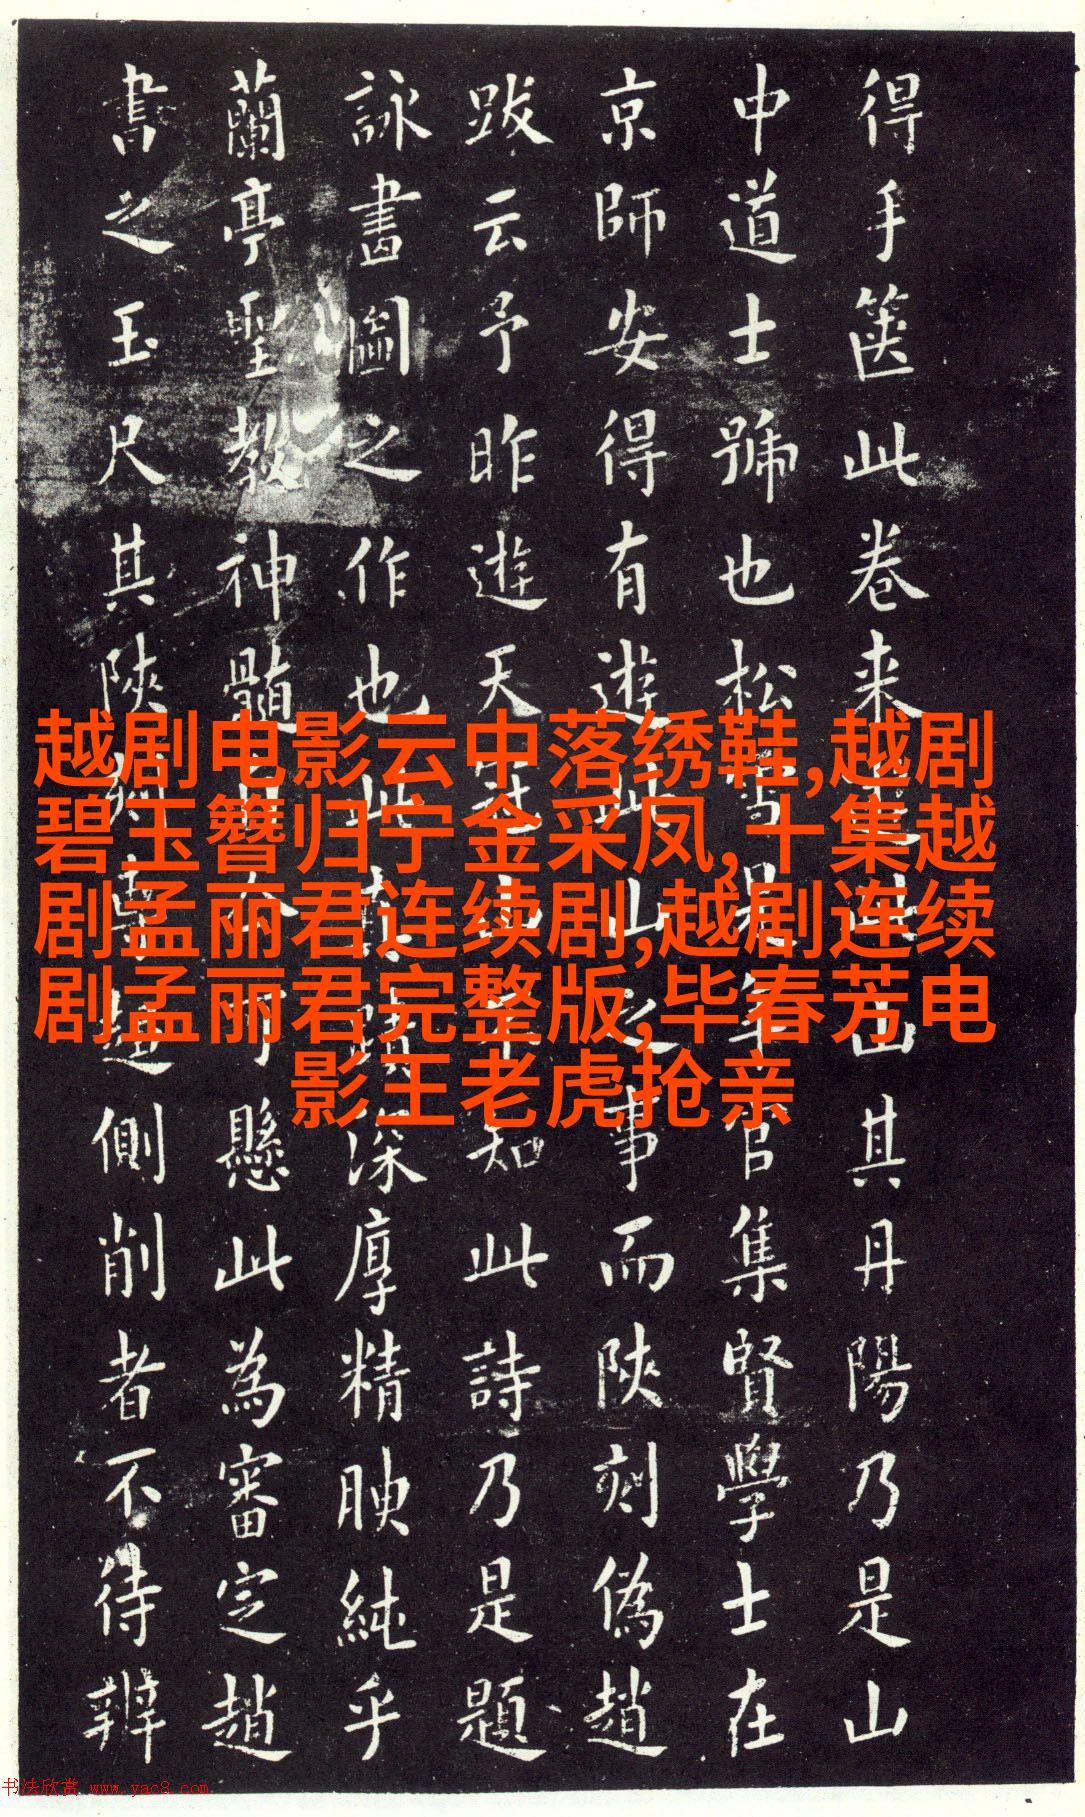 得手篋此卷来山其丹陽乃是山
中道士號也松雪是年官集賢學士在
京師安得有遊此山之事而陝刻偽趙
跋云予昨遊天冠山知此詩乃是題
詠畵圖之作也此真蹟深厚精腴純乎
蘭亭聖教神髓可懸此為審定趙
書之玉尺其陝刻專趨側削者不待辨
越剧电影云中落绣鞋,越剧
碧玉簪归宁金采凤,十集越
剧孟丽君连续剧,越剧连续
剧孟丽君完整版,毕春芳电
影王老虎抢亲
书法欣赏 www.yac8.com